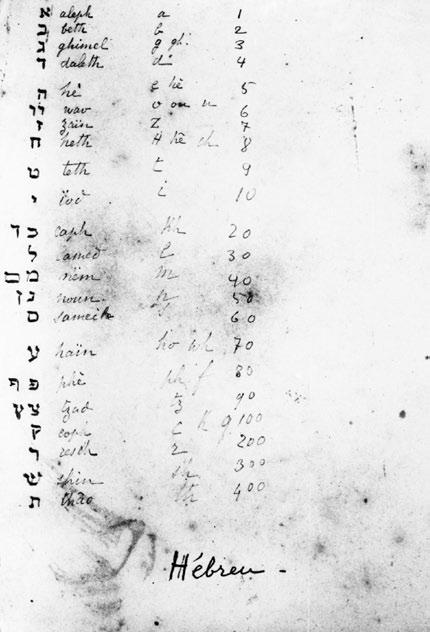 א aleph a 1
ב beth b 2
ג ghimel g gh. 3
ד daleth d 4
ה hé e hè 5
ו wav o ou u 6
ז zaïn Z 7
ח heth H hè ch 8
ט teth t 9
י ïod i 10
כ ך caph kh 20
ל lamed l 30
מ ם mem m 40
נ ן noun n 50
ס sameck 60
ע haïn ho wh 70
פ ף phè ph f 80
צ ץ tzad tz 90
ק coph C K q 100
ר resch r 200
ש shin sh 300
ת thao th 400
Hébreu -